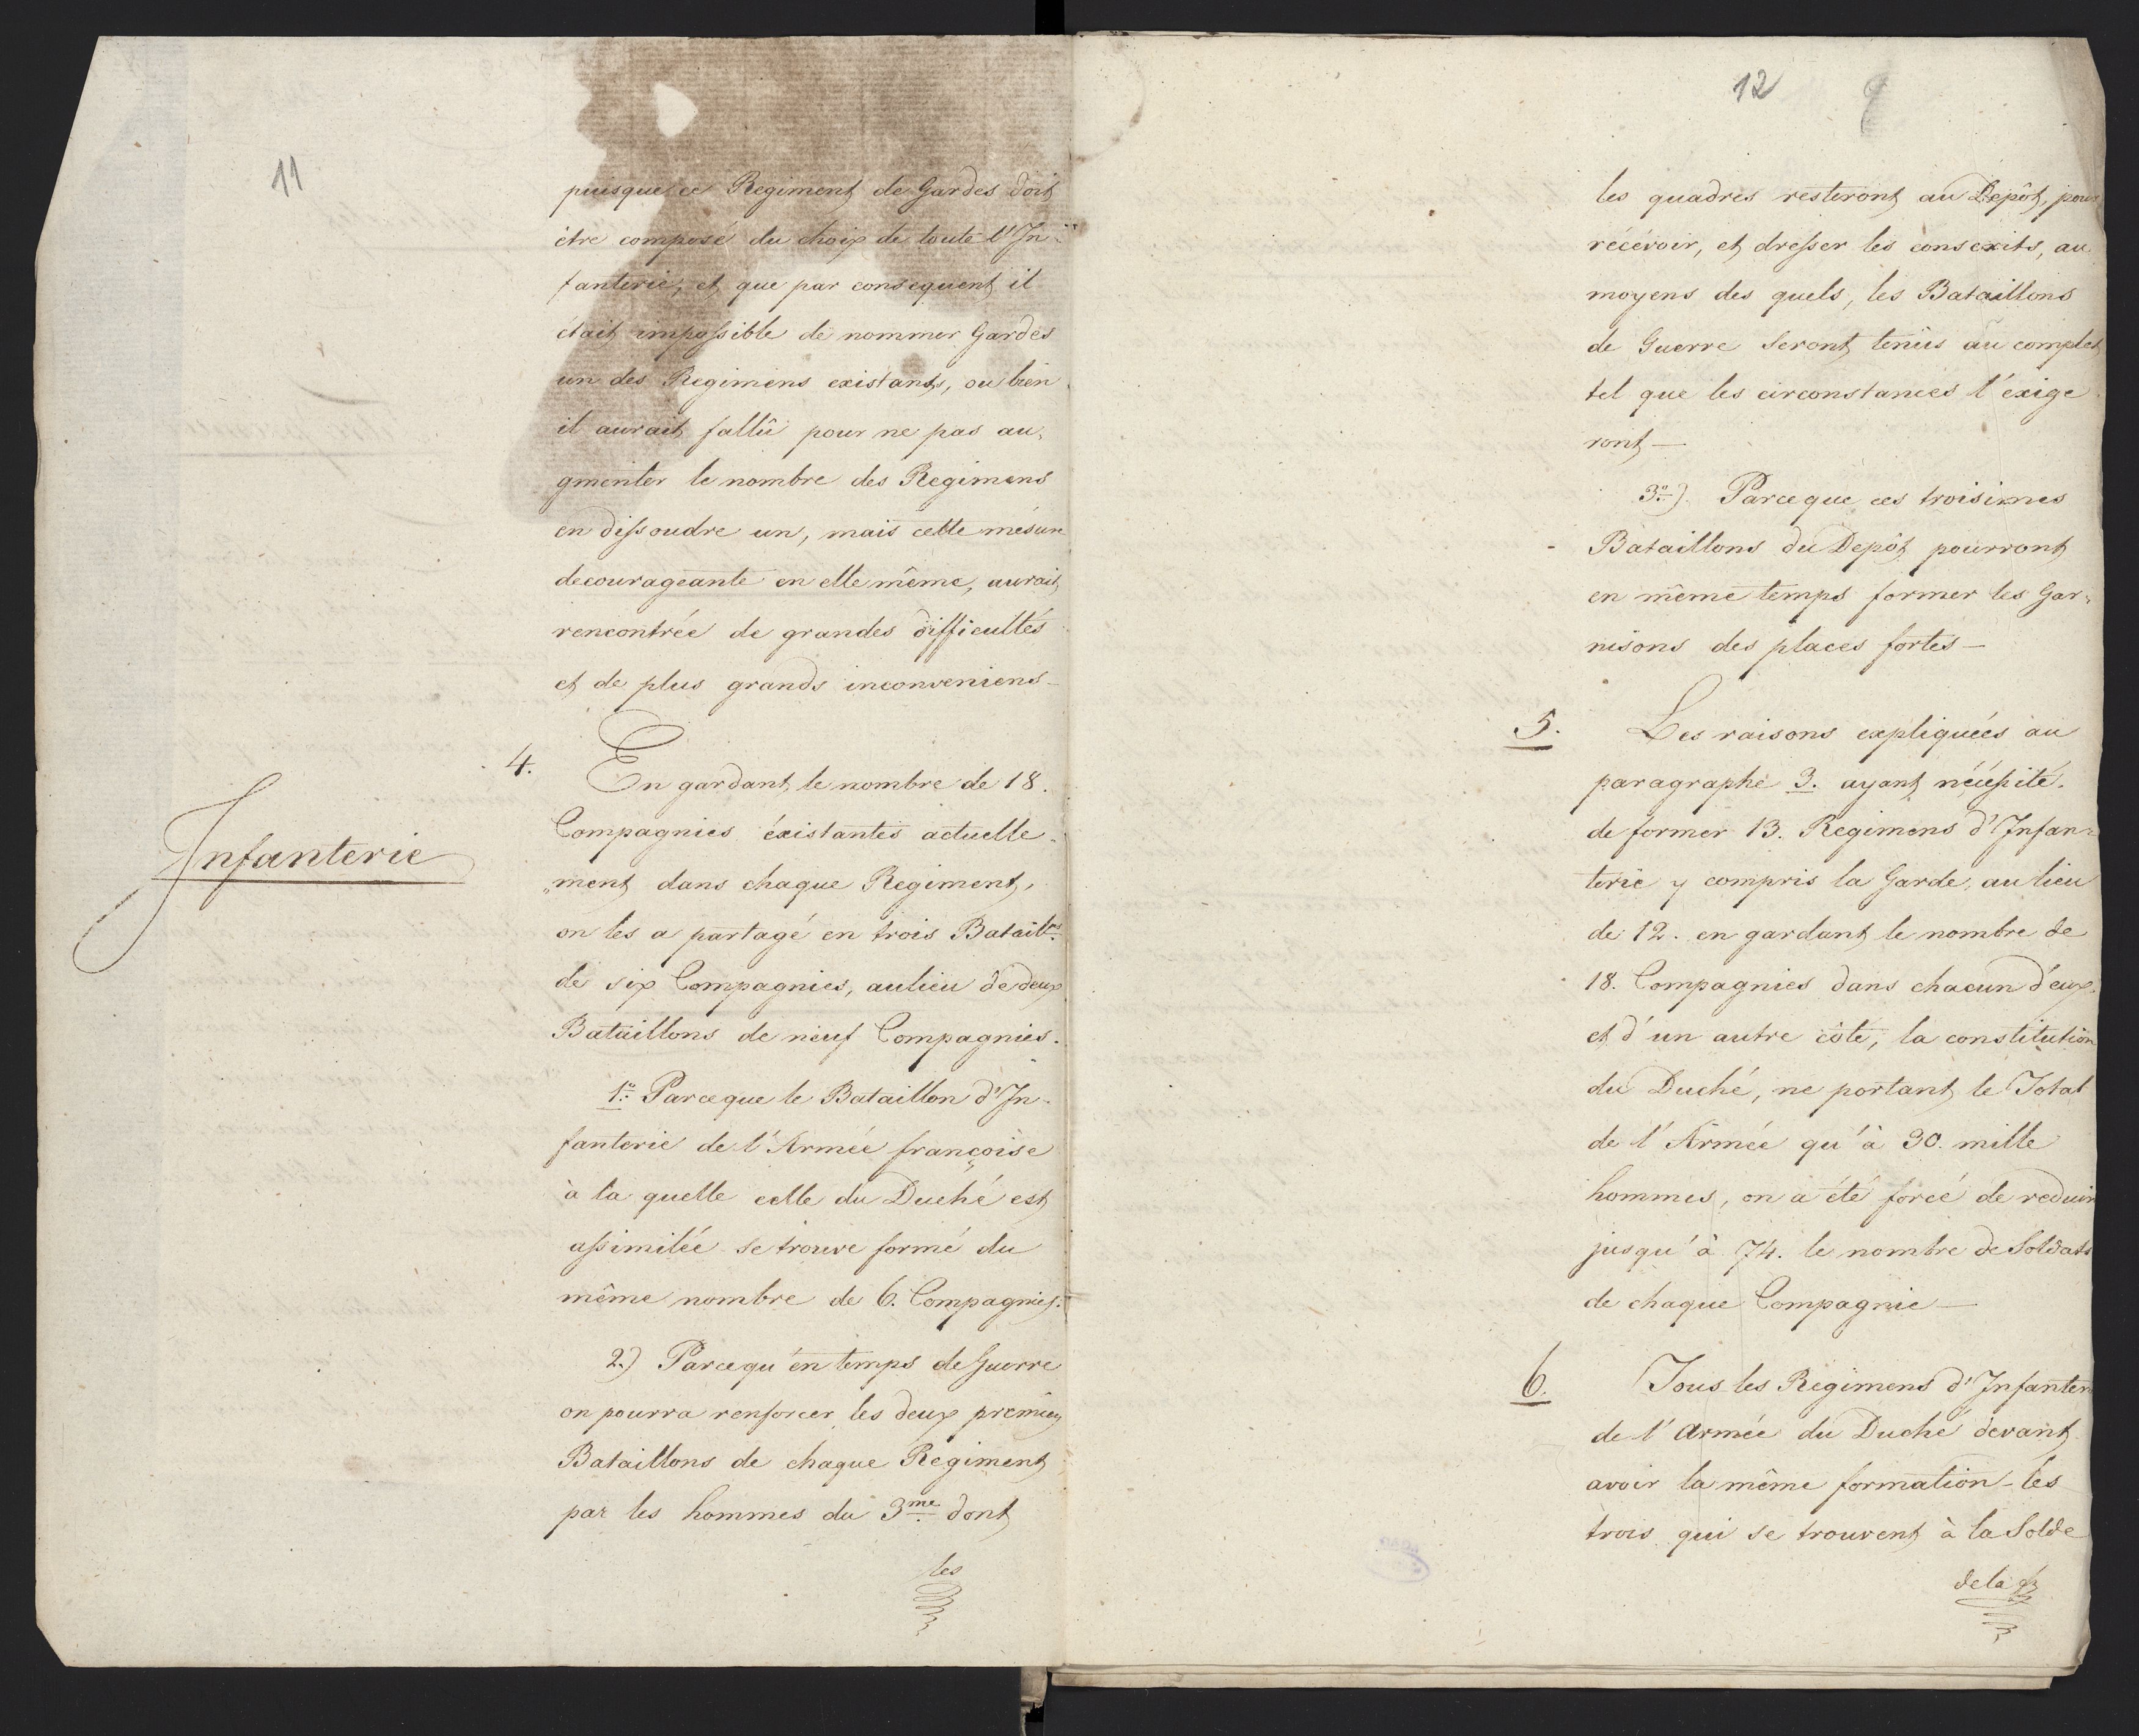 11
puisque ce Regiment de Gardes doit
être composé du choix de toute l'In-
fanterie, et que par consequent il
était impossible de nommer Gardes
un des Regimens existants, ou bien
il aurait fallû pour ne pas au-
gmenter le nombre des Regimens
en dissoudre un, mais cette mésure
decourageante en elle même, aurait
rencontrée de grandes difficultés
et de plus grands inconveniens—
Infanterie
4. En gardant le nombre de 18.
Compagnies éxistantes actuelle-
"ment dans chaque Regiment,
on les a partagé en trois Bataill.ns
de six Compagnies, aulieu de deux
Bataillons de neuf Compagnies.
1.º Parceque le Bataillon d'In-
fanterie de l'Armée françoise
à la quelle celle du Duché est
assimilée se trouve formé du
même nombre de 6. Compagnies.
2.) Parcequ'en temps de Guerre
on pourra renforcer les deux premiers
Bataillons de chaque Régiment
par les hommes du 3me dont
les
12
les quadres resteront au Depôt, pour
récévoir, et dresser les conscrits, au
moyens des quels, les Bataillons
de Guerre seront tenûs au complet
tel que les circonstances l'éxige
ront—
3º) Parceque ces troisimes
Bataillons du Depôt pourront
en même temps former les Gar-
nisons des places fortes—
5. Les raisons expliquées au
paragraphe 3. ayant nécéssité.
de former 13. Regimens d'Infan-
terie y compris la Garde, au lieu
de 12. en gardant le nombre de
18. Compagnies dans chacun d'eux.
et d'un autre côté, la constitution
du Duché, ne portant le Total
de l'Armée qu'à 30. mille
hommes, on a été forcé de reduir
jusqu'à 74. le nombre de Soldats
de chaque Compagnie—
6. Tous les Regimens d'Infanter
de l'Armée du Duché devant
avoir la même formation—les
trois qui se trouvent à la Solde
de la